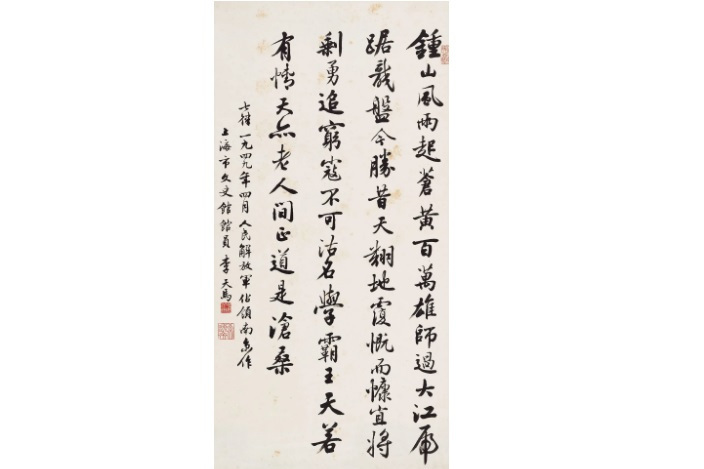 鍾山風雨起蒼黃百萬雄師過大江虎
踞龍盤今勝昔天翻地覆慨而慷宜將
剩勇追窮寇不可沽名學霸王天若
有情天亦老人間正道是滄桑
七律一九四九年四月人民解放軍佔領南京作
上海市文史館館員李天馬